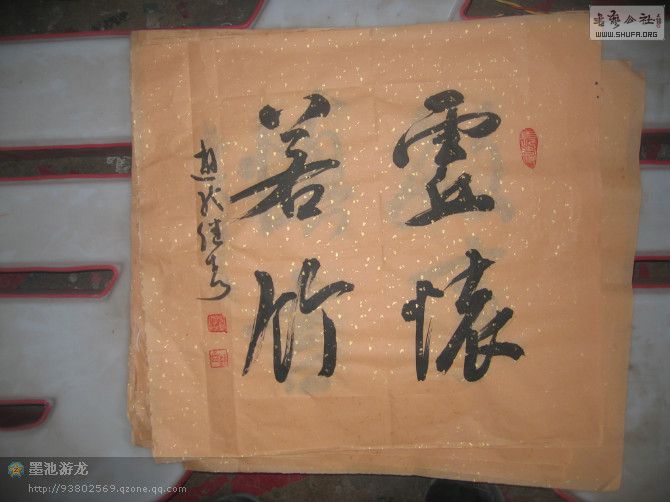 虚懷
若竹
書藝公社
WWW.SHUFA.ORG
墨池游龙
http://93802569.qzone.qq.com